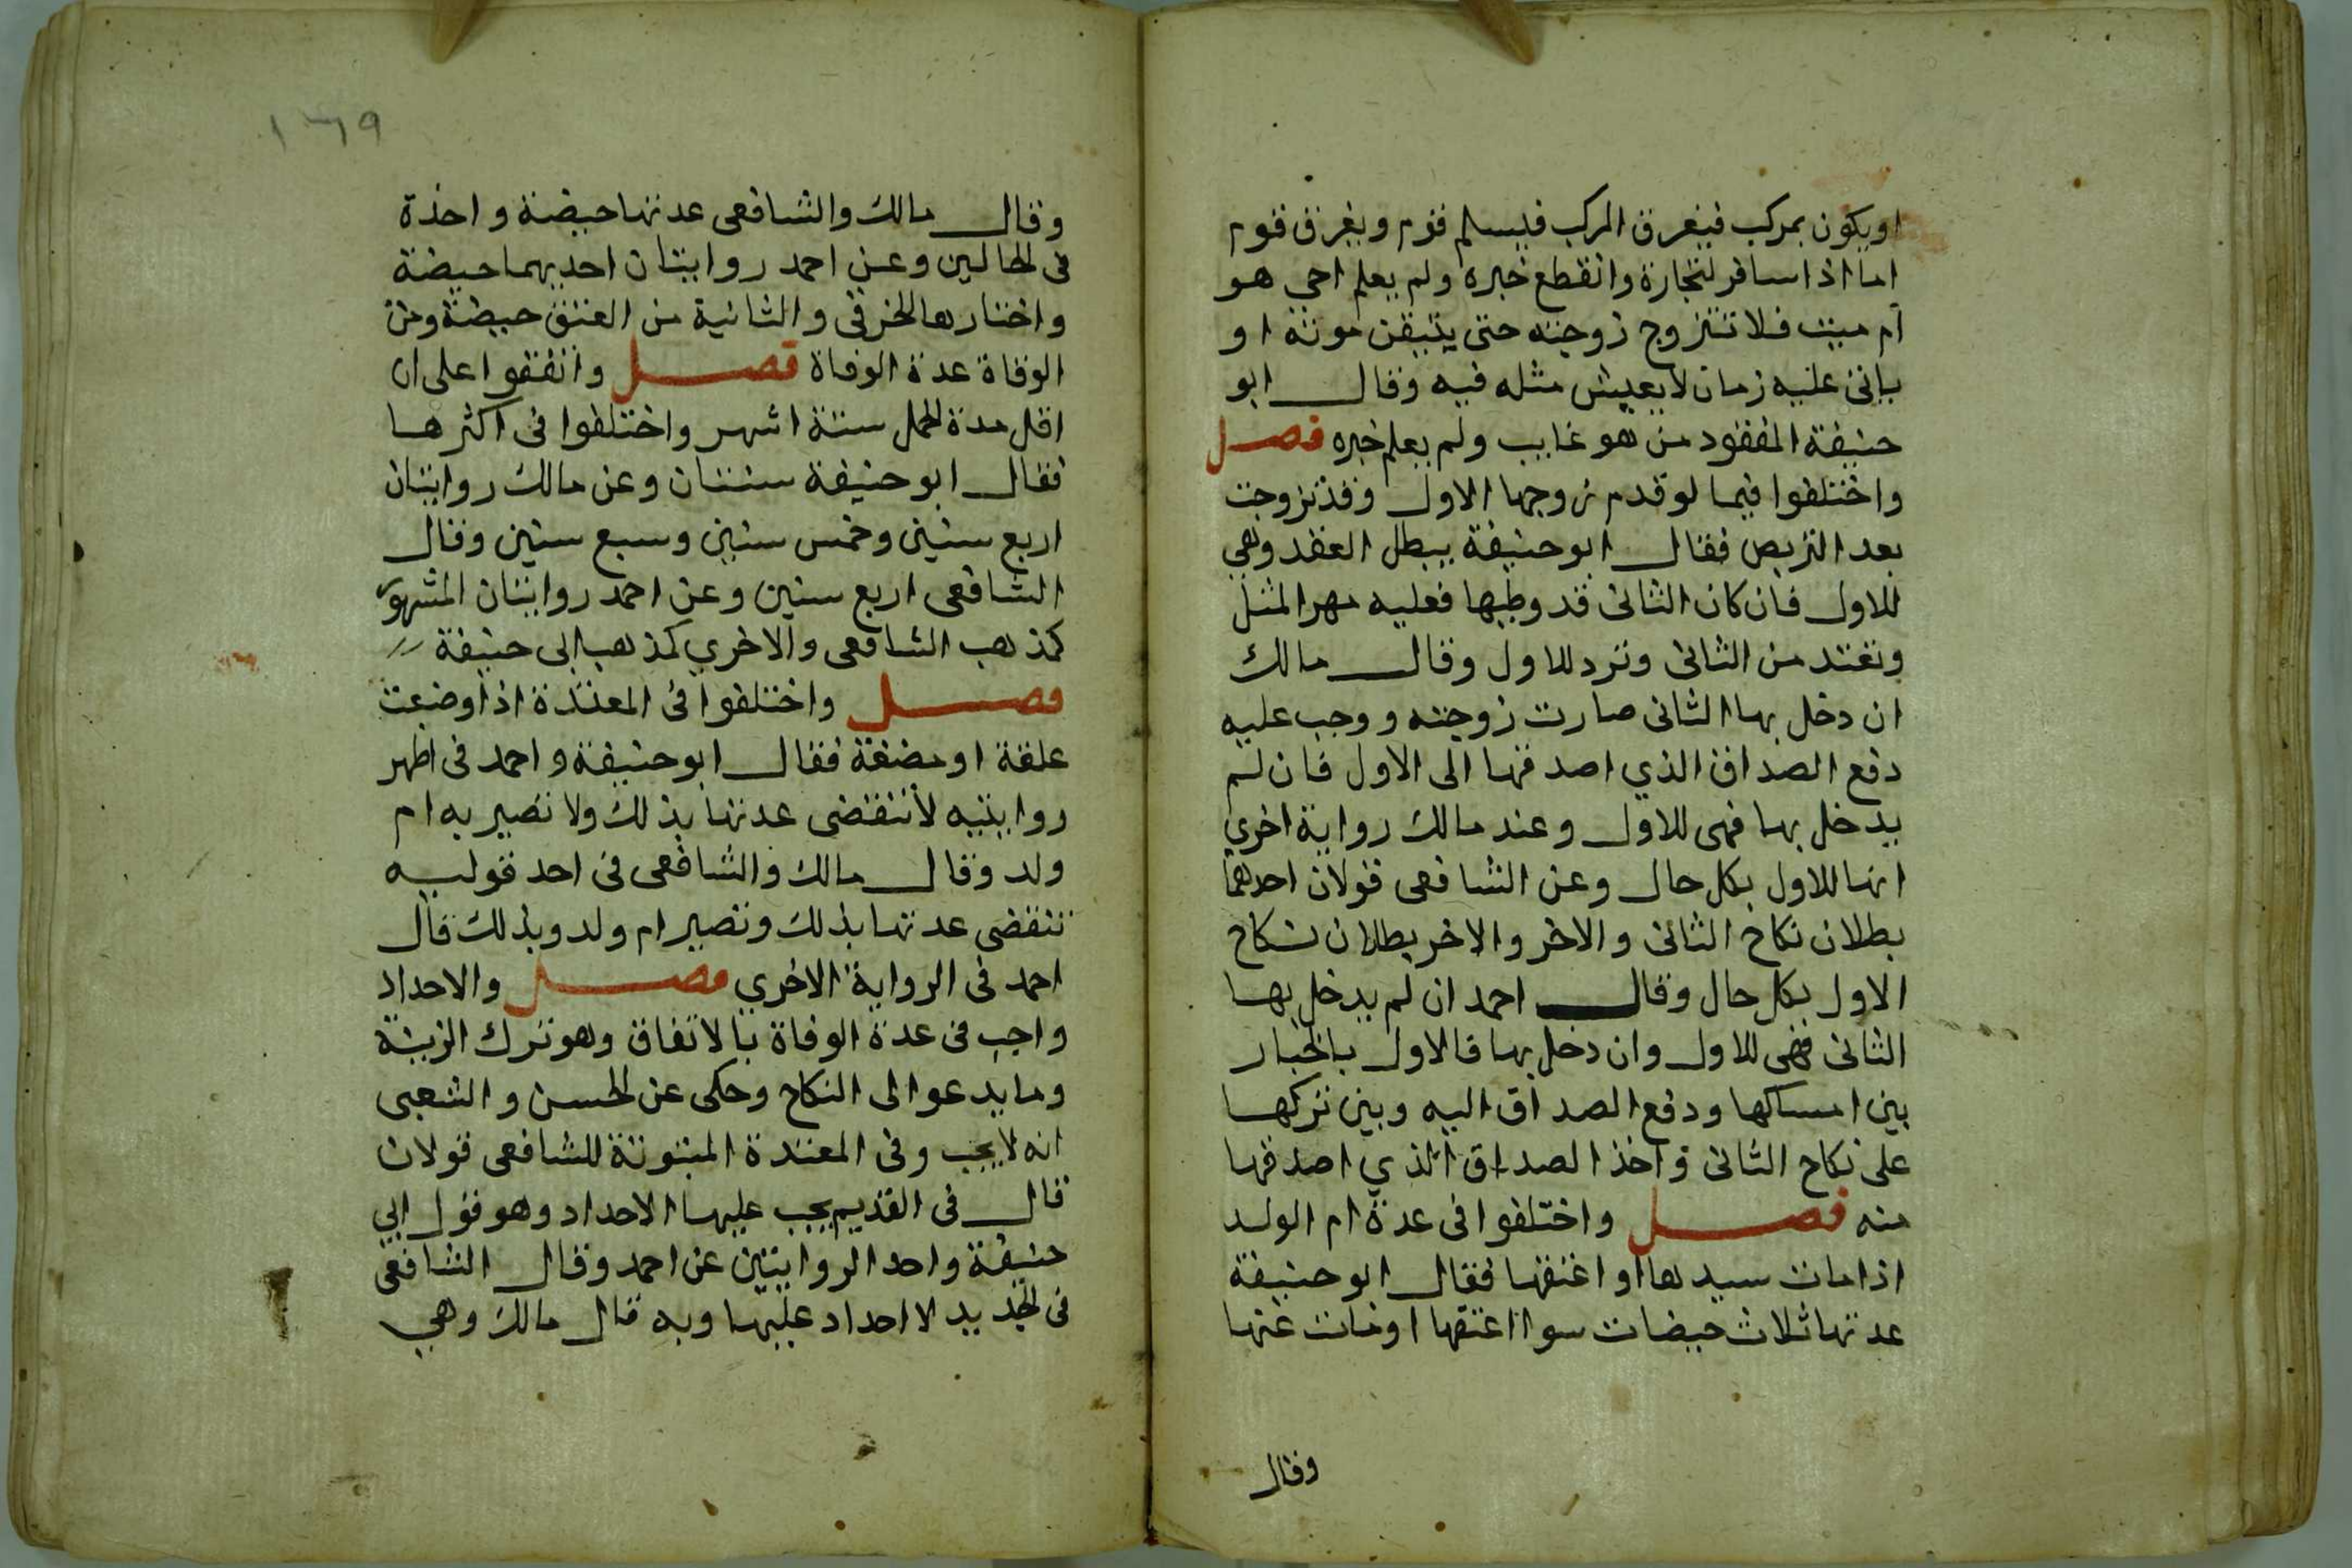 او يكون بمركب فيغرق المركب فيسلم قوم ويغرق قوم
اما اذا سافر لتجارة وانقطع خبره ولم يعلم احي هو
ام ميت فلا تتزوج زوجته حتى يتيقن موته او
ياتي عليه زمان لا يعيش مثله فيه وقال ابو
حنيفة المفقود من هو غايب ولم يعلم خبره فصل
واختلفوا فيما لو قدم زوجها الاول وقد تزوجت
بعد التربص فقال ابو حنيفة يبطل العقد وهي
للاول فان كان الثاني قد وطيها فعليه مهر المثل
وتعتد من الثاني وترد للاول وقال مالك
ان دخل بها الثاني صارت زوجته ووجب عليه
دفع الصداق الذي اصدقها الى الاول فان لم
يدخل بها فهي للاول وعند مالك رواية اخري
انها للاول بكل حال وعن الشافعي قولان احدهما
بطلان نكاح الثاني والاخر والاخر بطلان نكاح
الاول بكل حال وقال احمد ان لم يدخل بها
الثاني فهي للاول وان دخل بها فالاول بالخيار
بين امساكها ودفع الصداق اليه وبين تركها
على نكاح الثاني واخذ الصداق الذي اصدقها
منه فصل واختلفوا في عدة ام الولد
اذا مات سيدها او اعتقها فقال ابو حنيفة
عدتها ثلاث حيضات سوا اعتقها او مات عنها
وقال
١٦٩
وقال مالك والشافعي عدتها حيضة واحدة
في الحالين وعن احمد روايتان احديهما حيضة
واختارها الخرقي والثانية من العتق حيضة ومن
الوفاة عدة الوفاة فصل واتفقوا على ان
اقل مدة الحمل ستة اشهر واختلفوا في اكثرها
فقال ابو حنيفة سنتان وعن مالك روايتان
اربع سنين وخمس سنين وسبع سنين وقال
الشافعي اربع سنين وعن احمد روايتان المشهور
كمذهب الشافعي والاخري كمذهب ابى حنيفة
فصل واختلفوا في المعتدة اذا وضعت
علقة او مضغة فقال ابو حنيفة واحمد في اظهر
روايتيه لا تنقضى عدتها بذلك ولا تصير به ام
ولد وقال مالك والشافعي في احد قوليه
تنقضي عدتها بذلك وتصير ام ولد وبذلك قال
احمد في الرواية الاخري فصل والاحداد
واجب في عدة الوفاة بالاتفاق وهو ترك الزينة
وما يدعو الى النكاح وحكى عن الحسن والشعبي
انه لا يجب وفي المعتدة المبتوتة للشافعي قولان
قال في القديم يجب عليها الاحداد وهو قول ابي
حنيفة واحد الروايتين عن احمد وقال الشافعي
في الجديد لا احداد عليها وبه قال مالك وهي